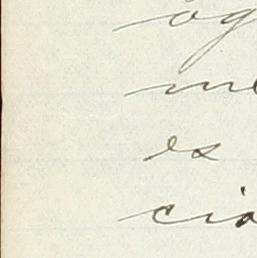 og
me
es
cia